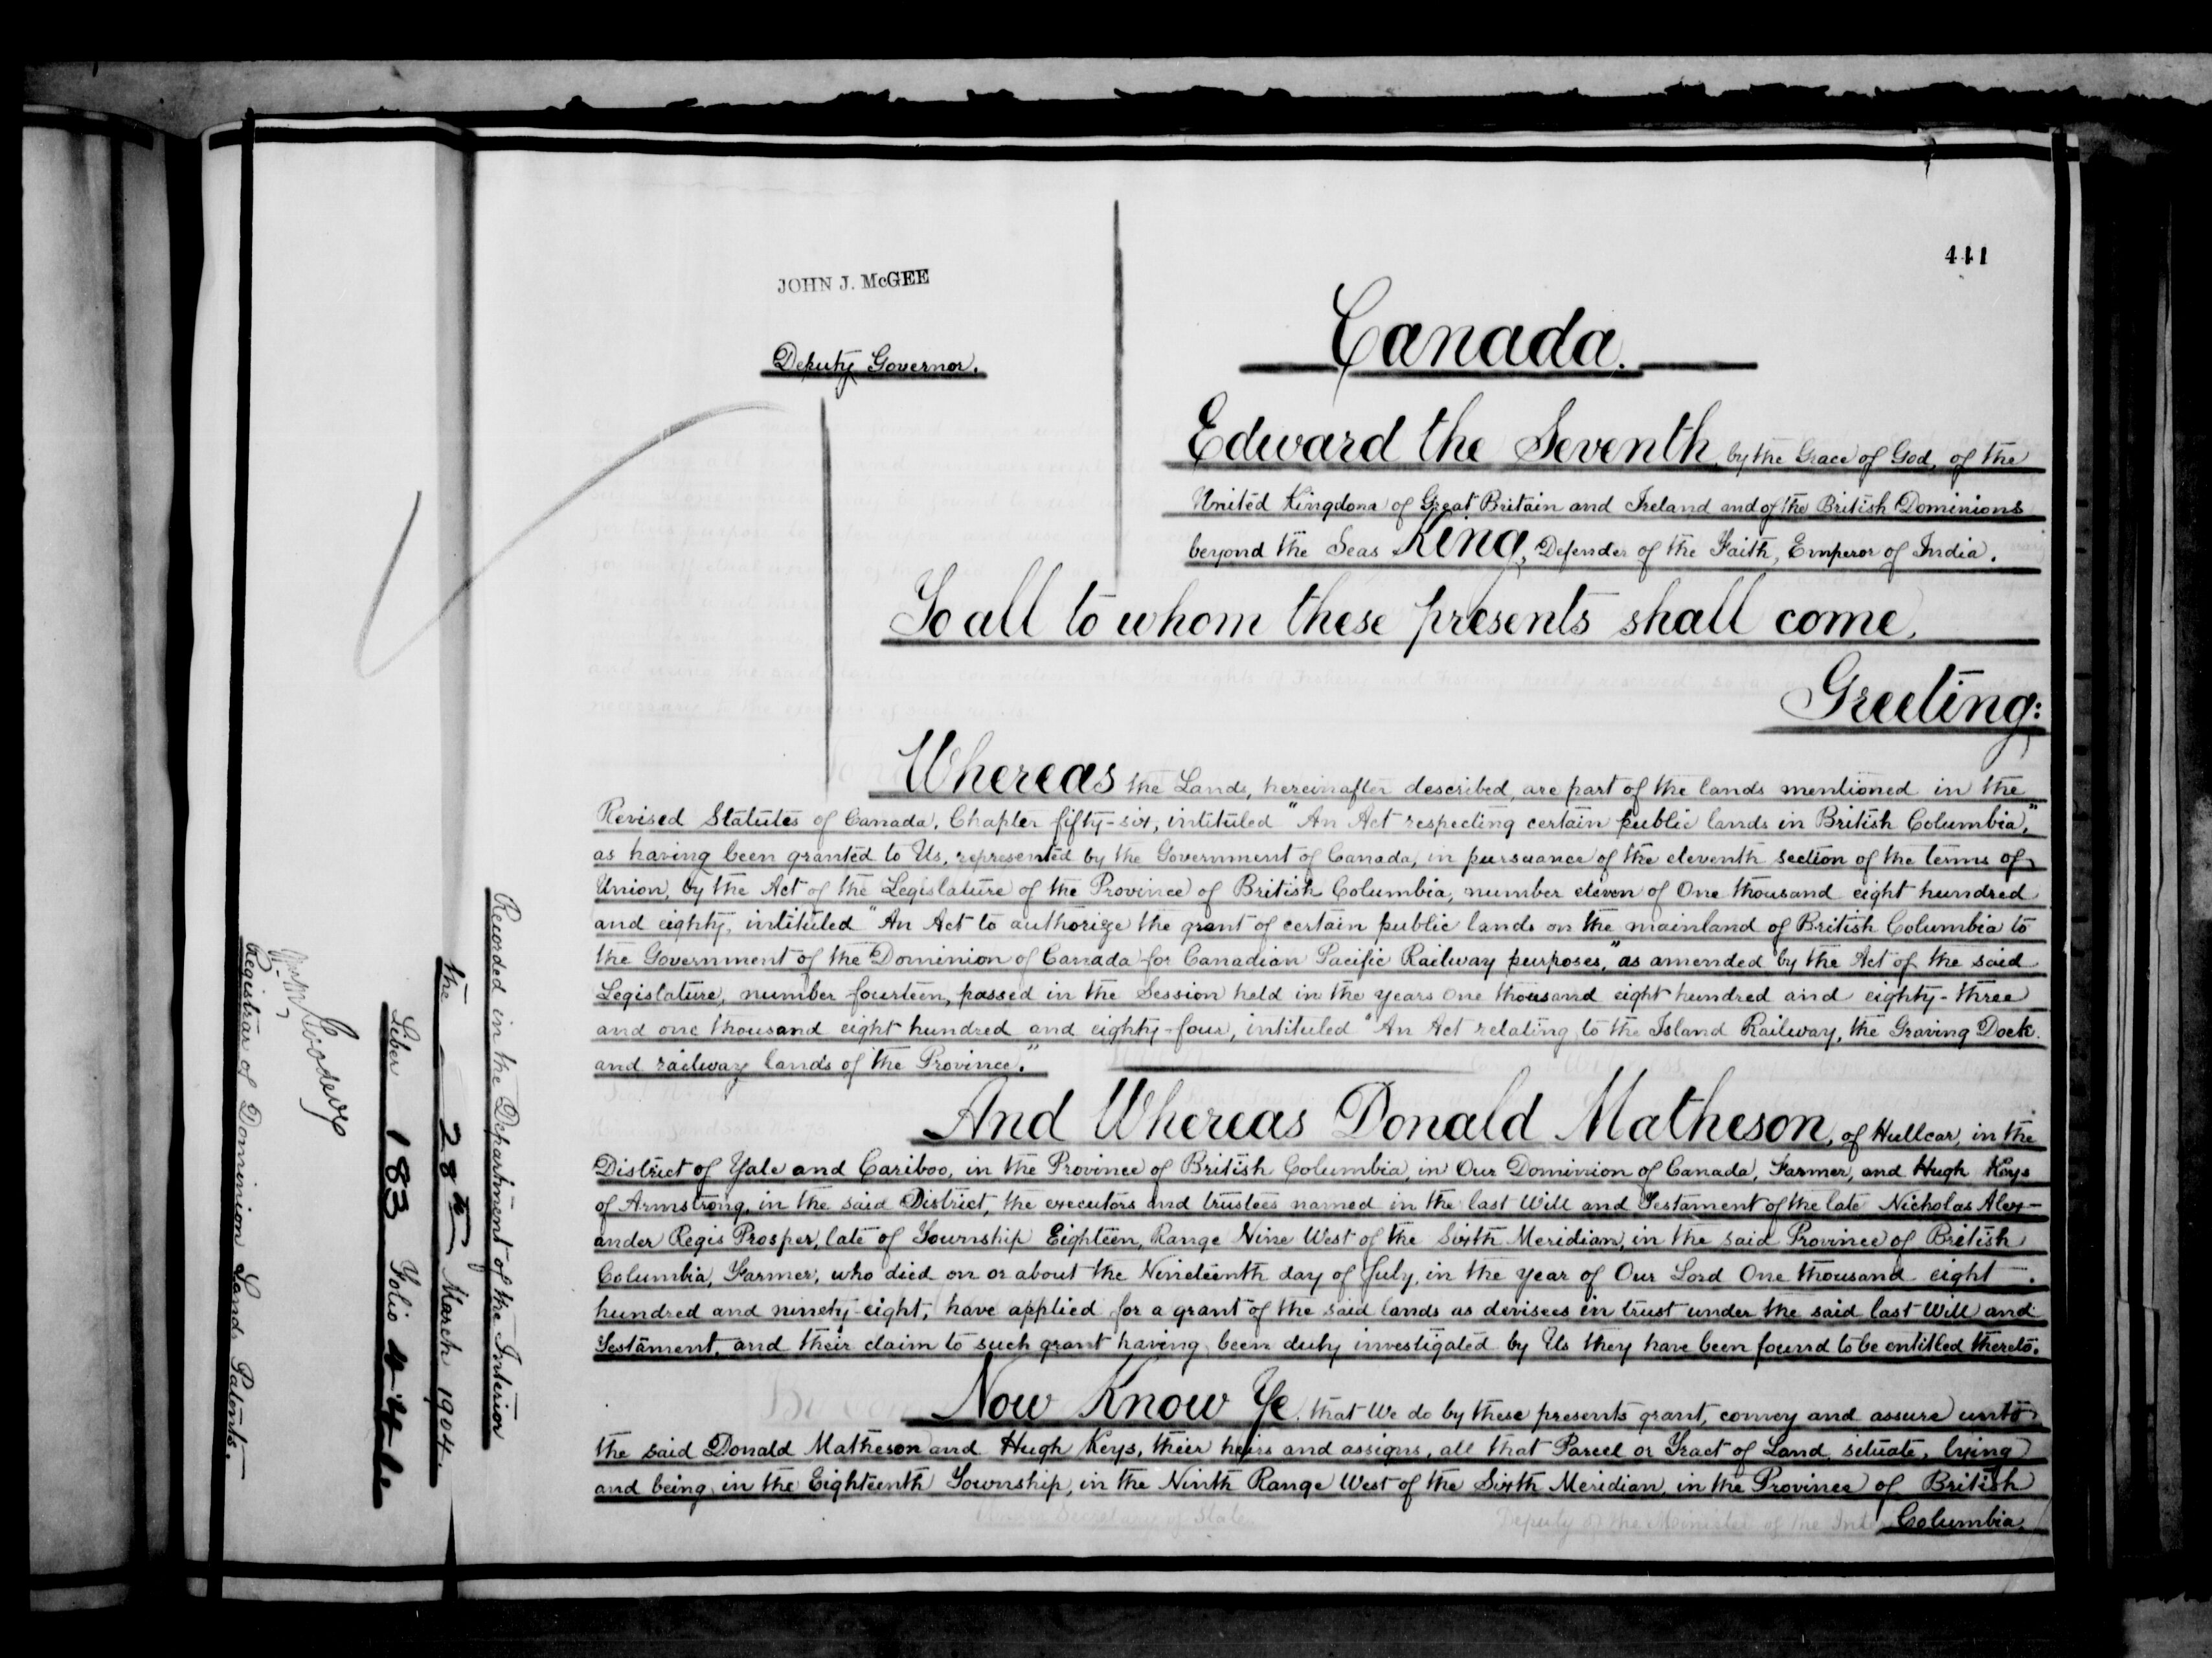 441
JOHN J. McGEE
Deputy Governor.
Canada.
Edward the Seventh, by the Grace of God, of the
United Kingdom of Great Britain and Ireland and of the British Dominions
beyond the Seas King, Defender of the Faith, Emperor of India.
To all to whom these presents shall come,
Greeting:
Whereas the Lands, hereinafter described, are part of the lands mentioned in the
Revised Statutes of Canada, Chapter fifty-six, intituled "An Act respecting certain public lands in British Columbia,"
as having been granted to Us, represented by the Government of Canada, in pursuance of the eleventh section of the terms of
Union, by the Act of the Legislature of the Province of British Columbia, number eleven of One thousand eight hundred
and eighty, intituled "An Act to authorize the grant of certain public lands on the mainland of British Columbia to
the Government of the Dominion of Canada for Canadian Pacific Railway purposes," as amended by the Act of the said
Legislature, number fourteen, passed in the Session held in the years One thousand eight hundred and eighty-three
and one thousand eight hundred and eighty-four, intituled "An Act relating to the Island Railway, the Graving Dock
and railway lands of the Province."
And Whereas Donald Matheson, of Hullcar, in the
District of Yale and Cariboo, in the Province of British Columbia, in Our Dominion of Canada, Farmer, and Hugh Keys
of Armstrong, in the said District, the executors and trustees named in the last Will and Testament of the late Nicholas Alex-
ander Regis Prosper, late of Township Eighteen, Range Nine West of the Sixth Meridian, in the said Province of British
Columbia, Farmer, who died on or about the Nineteenth day of July, in the year of Our Lord One thousand eight
hundred and ninety-eight, have applied for a grant of the said lands as devisees in trust under the said last Will and
Testament, and their claim to such grant having been duly investigated by Us they have been found to be entitled thereto.
Now Know Ye, that We do by these presents grant, convey and assure unto
the said Donald Matheson and Hugh Keys, their heirs and assigns, all that Parcel or Tract of Land, situate, lying
and being in the Eighteenth Township, in the Ninth Range West of the Sixth Meridian, in the Province of British
Columbia,
Recorded in the Department of the Interior
the 28th March 1904.
Liber 183 Folio 441
Registrar of Dominion Lands Patents.